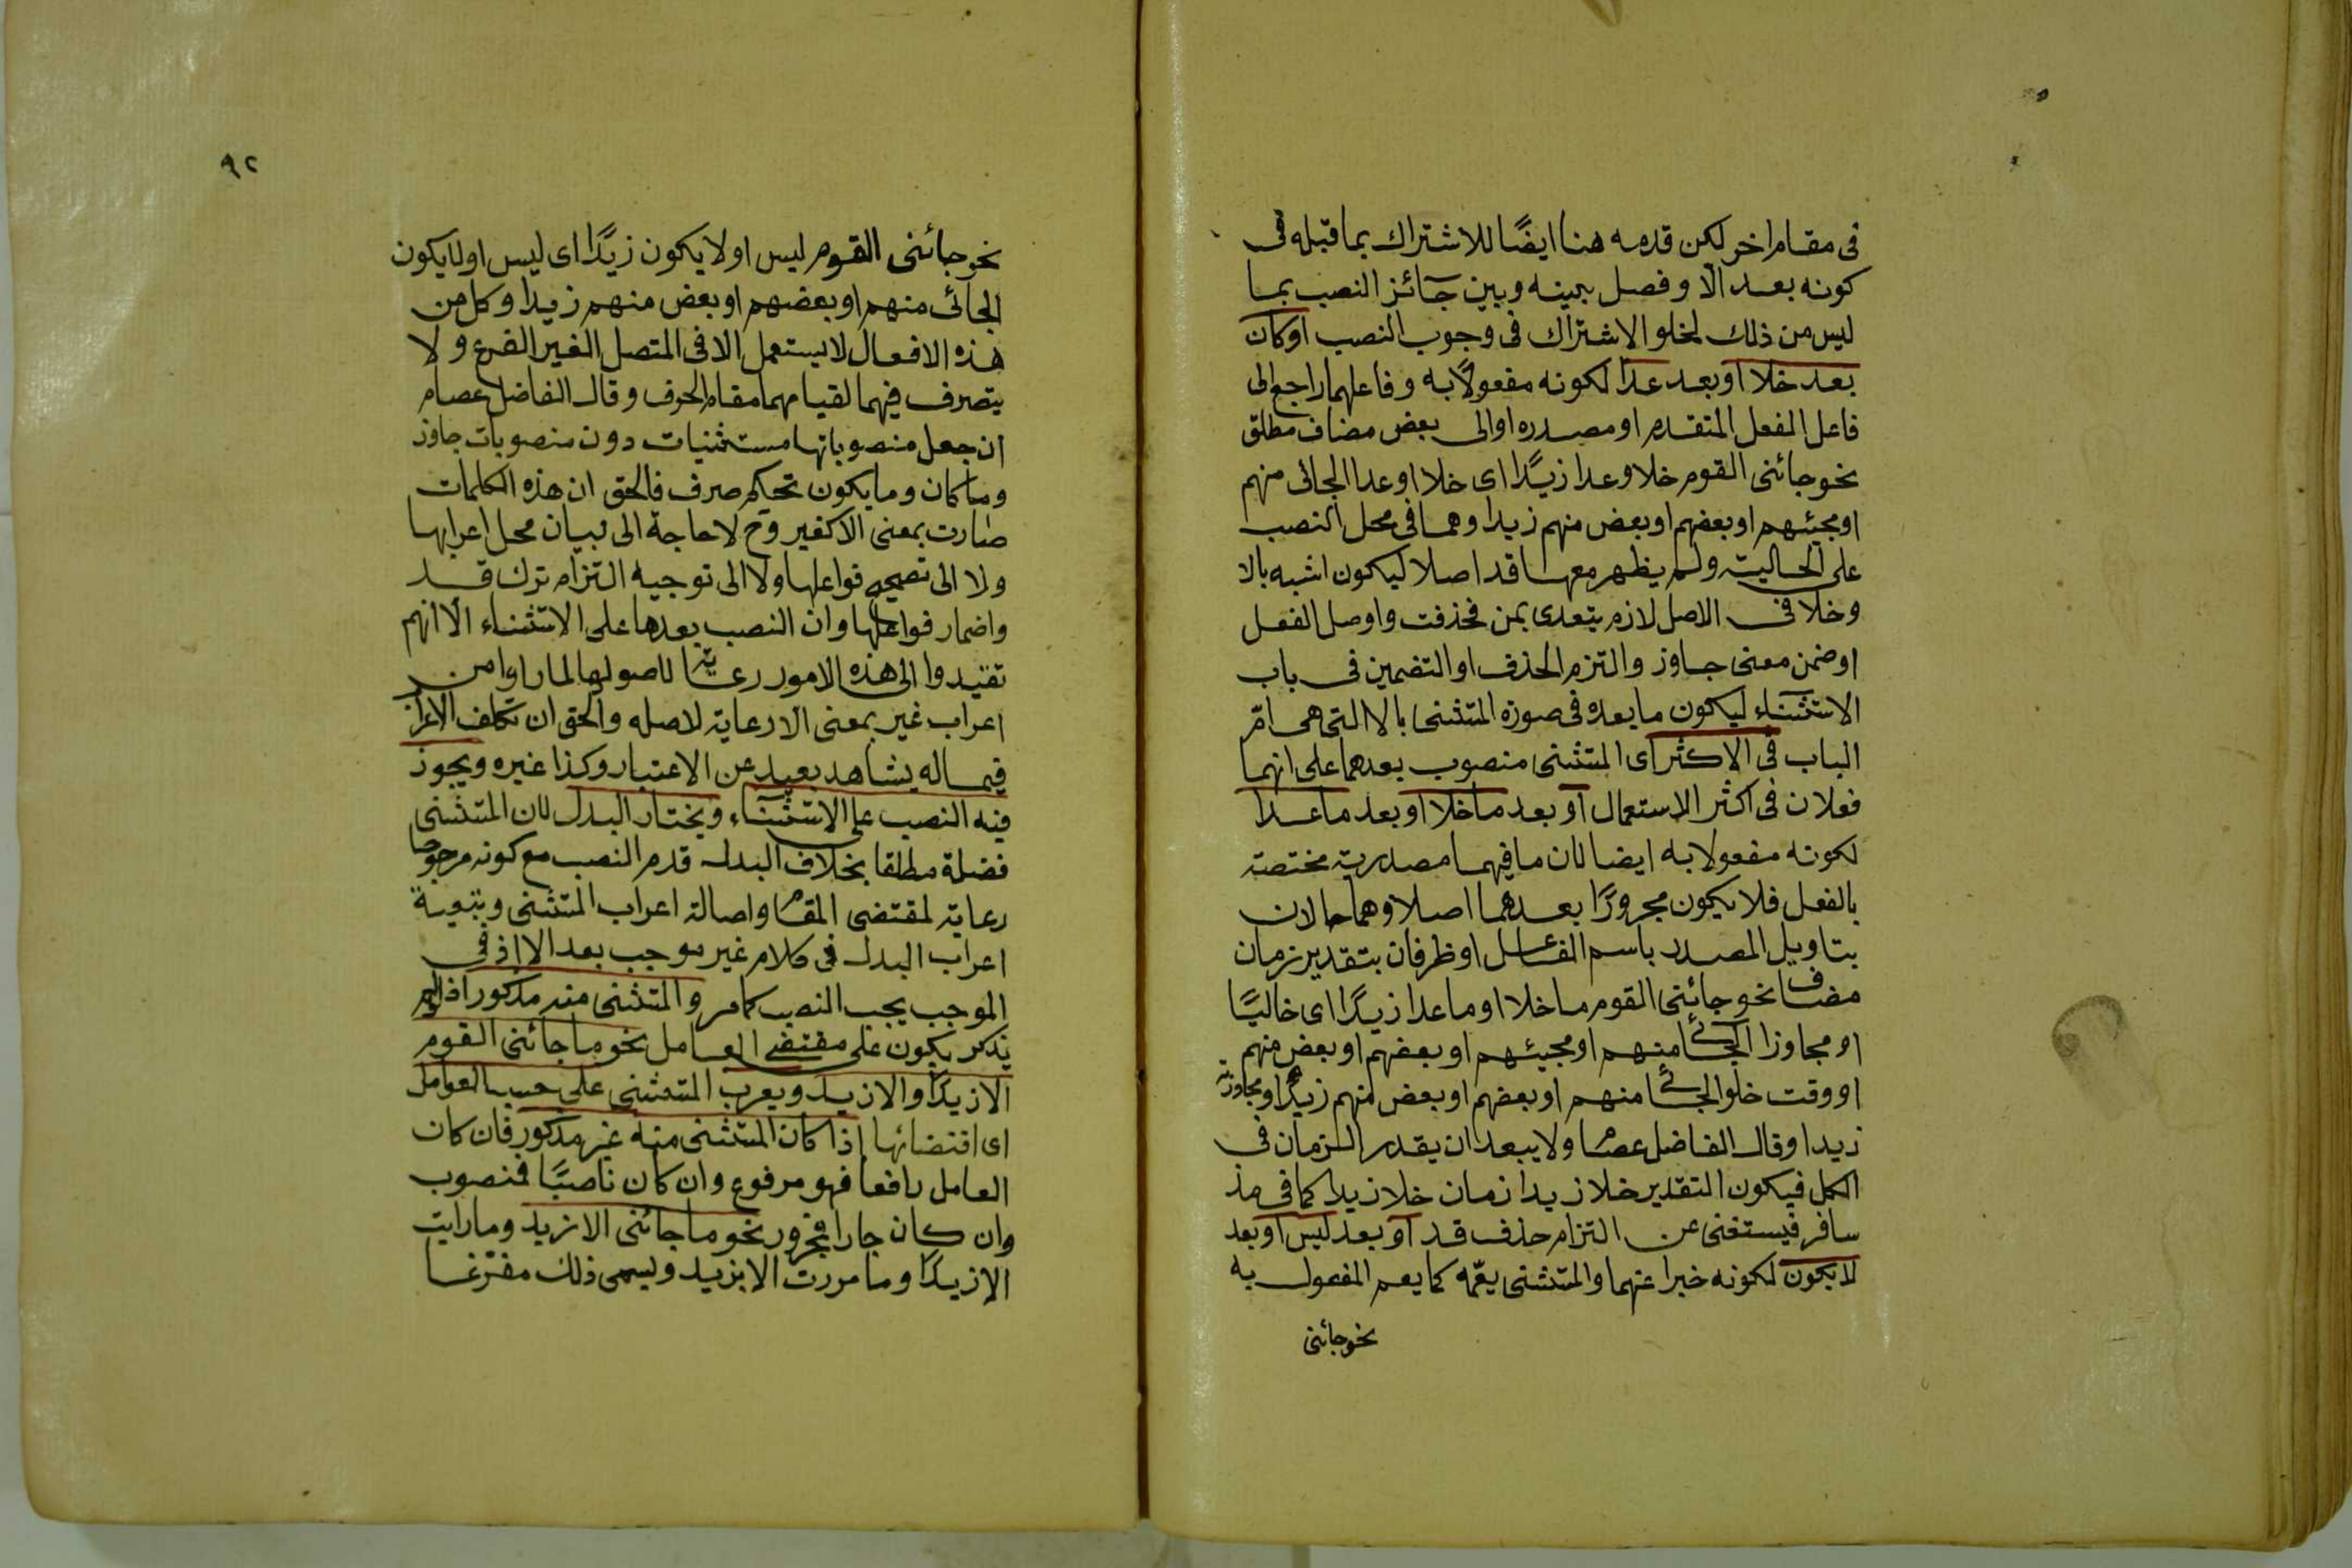 فى مقام اخر لكن قدمه هنا ايضًا للاشتراك بما قبله فى
كونه بعد الّا وفصل بينه وبين جآئز النصب بما
ليس من ذلك لخلو الاشتراك فى وجوب النصب اوكان
بعد خلا اوبعد عدا لكونه مفعولًا به وفاعلهما راجع الى
فاعل الفعل المتقدم او مصدره اوالى بعض مضاف مطلق
نحو جائنى القوم خلا وعدا زيدًا اى خلا او عدا الجائى منهم
او مجيئهم او بعضهم او بعض منهم زيدا وهما فى محل النصب
على الحالية ولم يظهر معهما قد اصلا ليكون اشبه بالا
وخلا فى الاصل لازم يتعدى بمن فحذفت واوصل الفعل
اوضمن معنى جاوز والتزم الحذف او التضمين فى باب
الاستثنآء ليكون ما بعده فى صورة المستثنى بالا التى هى امّ
الباب فى الاكثر اى المستثنى منصوب بعدهما على انهما
فعلان فى اكثر الاستعمال او بعد ما خلا او بعد ما عدا
لكونه مفعولا به ايضا لان ما فيهما مصدرية مختصة
بالفعل فلا يكون مجرورًا بعدهما اصلا وهما حالان
بتاويل المصدر باسم الفاعل او ظرفان بتقدير زمان
مضاف نحو جائنى القوم ما خلا او ما عدا زيدًا اى خاليًا
او مجاوزا الجائى منهم او مجيئهم او بعضهم او بعض منهم
او وقت خلو الجائى منهم او بعضهم او بعض منهم زيدًا او مجاوزته
زيدا وقال الفاضل عصام ولا يبعد ان يقدر الزمان فى
الكل فيكون التقدير خلا زيدا زمان خلا زيدا كما فى مذ
سافر فيستغنى عن التزام حذف قد او بعد ليس او بعد
لا يكون لكونه خبرا عنهما والمستثنى يعمّه كما يعم المفعول به
نحو جائنى
٩٢
نحو جائنى القوم ليس او لا يكون زيدًا اى ليس او لا يكون
الجائى منهم او بعضهم او بعض منهم زيدا وكل من
هذه الافعال لا يستعمل الا فى المتصل الغير المفرغ ولا
يتصرف فيهما لقيامهما مقام الحرف وقال الفاضل عصام
ان جعل منصوباتها مستثنيات دون منصوبات جاوز
وما كان وما يكون تحكم صرف فالحق ان هذه الكلمات
صارت بمعنى الا كغير وح لا حاجة الى بيان محل اعرابها
ولا الى تصحيح فواعلها ولا الى توجيه التزام ترك قد
واضمار فواعلها وان النصب بعدها على الاستثناء الّا انهم
تقيدوا الى هذه الامور رعاية لاصولها لما راوا من
اعراب غير بمعنى الا رعاية لاصله والحق ان تكلف الاعراب
فيما له يشاهد بعيد عن الاعتبار وكذا غيره ويجوز
فيه النصب على الاستثنآء ويختار البدل لان المستثنى
فضلة مطلقا بخلاف البدل قدم النصب مع كونه مرجوحا
رعاية لمقتضى المقام واصالة اعراب المستثنى وتبعية
اعراب البدل فى كلام غير موجب بعد الا اذ فى
الموجب يجب النصب كما مر والمستثنى منه مذكور اذ لو لم
يذكر يكون على مقتضى العامل نحو ما جائنى القوم
الا زيدًا والا زيد ويعرب المستثنى على حسب العوامل
اى اقتضائها اذا كان المستثنى منه غير مذكور فان كان
العامل رافعا فهو مرفوع وان كان ناصبًا فمنصوب
وان كان جارا فمجرور نحو ما جائنى الا زيد وما رايت
الا زيدًا وما مررت الا بزيد ويسمى ذلك مفرّغا